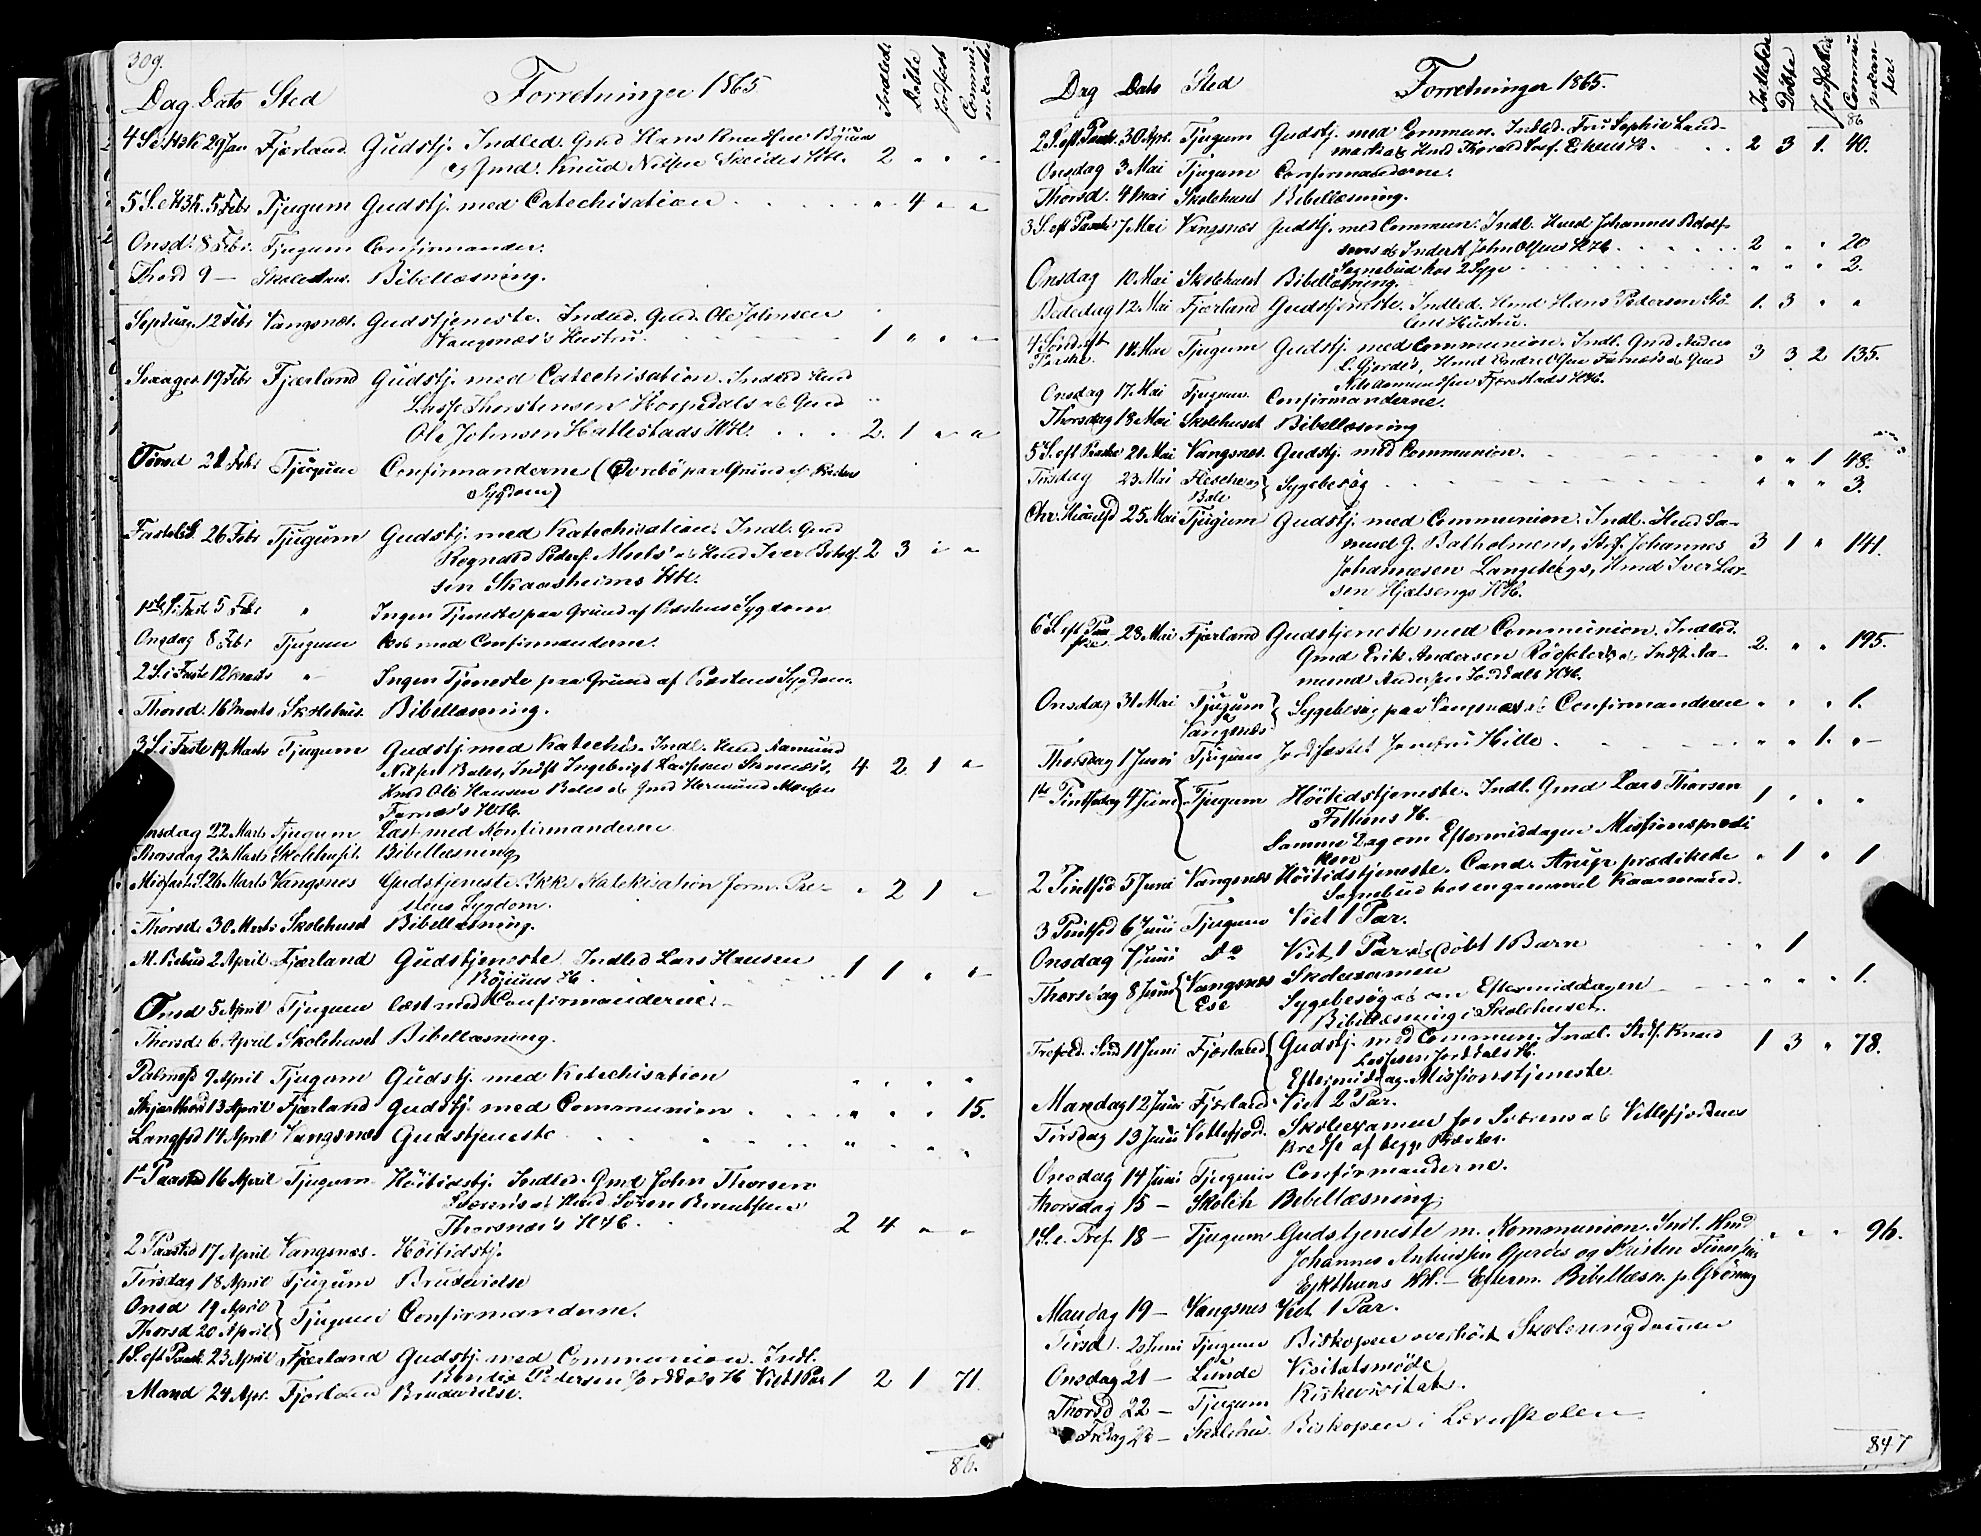 309.
Forretninger 1865
Dag Dato Sted Indled. Döbte Jordfest Communicanter
4 S. e. H3K 29 Jan Fjærland Gudstj. Indled. Gmd Hans Knudsen Böjum
og Gmd. Knud Nilsen Skeides HH. 2 " " "
5 S. e. H3K. 5 Febr Tjugum Gudstj. med Catechisation " 4 " "
Onsd. 8 Febr. Tjugum Confirmander.
Thorsd 9 — Skolehus. Bibellæsning.
Septuag. 12 Febr Vangsnæs. Gudstjeneste. Indled. Gmd. Ole Johnsen
Vangsnæs's Hustru. 1 " " "
Sexages. 19 Febr Fjærland Gudstj. med Catechisation. Indled Hmd
Lasse Thorstensen Horpedals og Gmd
Ole Johnsen Hatlestads HH. 2. 1 " "
Tirsd 21 Febr Tjugum Confirmanderne (Övrebö paa Grund af Præstens
Sygdom)
Fastel.S. 26 Febr Tjugum Gudstj. med Katechisation. Indl. Gmd
Rognald Peders. Mels' og Hmd Iver Botolf- 2 3 1 "
sen Skaasheims HH.
1ste S. i Fast 5 Febr " Ingen Tjeneste paa Grund af Præstens Sygdom
Onsdag 8 Febr Tjugum Læst med Confirmanderne.
2 S. i Faste 12 Marts " Ingen Tjeneste paa Grund af Præstens Sygdom.
Thorsd. 16 Marts Skolehus. Bibellæsning.
3 S. i Faste 19 Marts Tjugum Gudstj med Katechis. Indl. Hmd Aamund
Nilsen Bales, Indst Ingebrigt Larsen 4 2 1 "
Hmd Ole Hansen Bales og Gmd Hermund Monsen
Farnæs's HH.
Onsdag 22 Marts Tjugum Læst med Konfirmanderne
Thorsdag 23 Marts Skolehuset. Bibellæsning
Midfast.S. 26 Marts Vangsnes Gudstjeneste. Ikke Katekisation form. Præ- " 2 1 "
stens Sygdom.
Thorsd. 30 Marts Skolehuset Bibellæsning.
M. Bebud 2 April Fjærland Gudstjeneste Indled Lars Hansen
Böjums H. 1 1 " "
Onsd 5 April Tjugum læst med Confirmanderne.
Thorsd. 6 April Skolehuset Bibellæsning.
Palmesd 9 April Tjugum Gudstj. med Katechisation " " " "
Skjærthorsd 13 April Fjærland Gudstj. med Communion " " " 15.
Langfrd 14 April Vangsnæs Gudstjeneste " " " "
1st Paasked 16 April Tjugum Höitidstj. Indled. Gmd John Thorsen
Sværens og Hmd Sören Berentsen
Thorsnæs's HH. 2 4 " "
2 Paasked 17 April Vangsnæs. Höitidstj.
Tirsdag 18 April Tjugum Brudevielse
Onsd 19 April
Thorsd 20 April Tjugum Confirmanderne.
1 S. eft Paask. 23 April Fjærland Gudstj. med Communion. Indl.
Bendix Pedersen Jorddals H. Viet 1 Par 1 2 1 71.
Mand 24 Apr. Fjærland Brudevielse.
86.
Forretninger 1865.
Dag Dato Sted Indledede Döbte Jordfæstede Communicanter
86
2 S. eft Paask. 30 Apr. Tjugum Gudstj. med Commun. Indled. Fru Sophie Land-
mark og Hmd 2 3 1. 40.
Onsdag 3 Mai Tjugum Confirmanderne.
Thorsd. 4 Mai Skolehuset Bibellæsning.
3 S. eft Paask 7 Mai Vangsnæs Gudstj. med Commun. Indl. Hmd Johannes Botolf-
sens og Inderst John Olsens HH. 2 " " 20
Sognebud hos 2 Syge " " " 2.
Onsdag 10 Mai Skolehuset Bibellæsning.
Bededag 12 Mai Fjærland Gudstjeneste. Indled. Hmd Hans Pedersen 1. 3 " "
Hustru.
4 Sönd. eft
Paaske. 14 Mai Tjugum Gudstj. med Communion. Indl. Gmd Anders
L. Gjerdes, Hmd Endre Olsen Farnæs's og Gmd 3 3 2 135.
Nils Aamundsen Fjærestads HH.
Onsdag 17 Mai Tjugum Confirmanderne.
Thorsdag 18 Mai Skolehuset Bibellæsning
5 S. eft Paaske 21 Mai Vangsnæs. Gudstj. med Communion. " " 1 48.
Tirsdag 23 Mai Flesche og
Bale Sygebesög " " " 3.
Chr. Himmelfd 25 Mai Tjugum Gudstj. med Communion. Indl. Hmd Sa-
muel J. Batholmens, Strf. Johannes 3 1 " 141.
Johannesen Langebergs, Hmd Iver Lar-
sen Hjælsengs HH.
6 S. eft Paaske 28 Mai Fjærland Gudstjeneste med Communion. Indled.
Gmd Erik Andersen Rödseters og Indst. Aa- 2. " " 195.
mund Andersen Jorddals HH.
Onsdag 31 Mai Tjugum
Vangsnæs Sygebesög paa Vangsnæs og Confirmanderne " " " 1.
Thorsdag 1 Juni Tjugum Jordfæstet Jomfru Hille. " " 1. "
1ste Pintsedag 4 Juni Tjugum Höitidstjeneste. Indl. Gmd Lars Thorsen
Fettens H. 1 " " "
Samme Dag om Eftermiddagen Missionsprædi-
ken
2 Pintsed 5 Juni Vangsnæs Höitidstjeneste. Cand. Arup prædikede " 1 " 1
Sognebud hos en gammel Kaarmand.
3 Pintsed 6 Juni Tjugum Viet 1 Par.
Onsdag 7 Juni do Viet 1 Par og döbt 1 Barn " 1
Thorsdag 8 Juni Vangsnæs Skoleexamen
Ese Sygebesög og om Eftermiddagen " " " 1.
Bibellæsning i Skolehuset.
Trefold. Sönd 11 Juni Fjærland Gudstj. med Commun. Indl. Strf. Knud
Lassesen Jorddals H. 1 3 " 78.
Eftermiddag. Missionstjeneste
Mandag 12 Juni Fjærland Viet 2 Par.
Tirsdag 13 Juni Vetlefjord. Skoleexamen for Sværens og Vetlefjordens
Kredse af begge Præster.
Onsdag 14 Juni Tjugum Confirmanderne.
Thorsdag 15 — Skoleh Bibellæsning.
1 S. e. Tref. 18 — Tjugum Gudstjeneste m. Kommunion. Indl. Hmd " " " 96.
Johannes Gjerdes og Kristen
HH. — Efterm. Bibellæsn. p. Gröning
Mandag 19 — Vangsnes Viet 1 Par.
Tirsd. 20 Juni Tjugum Biskopen overhört Skoleungdommen
Onsdag 21 — Lunde Visitatsmöde
Thorsd 22 — Tjugum Kirkevisitats.
Fredag 23 — Skolehus. Biskopen i Lærerskolen
847